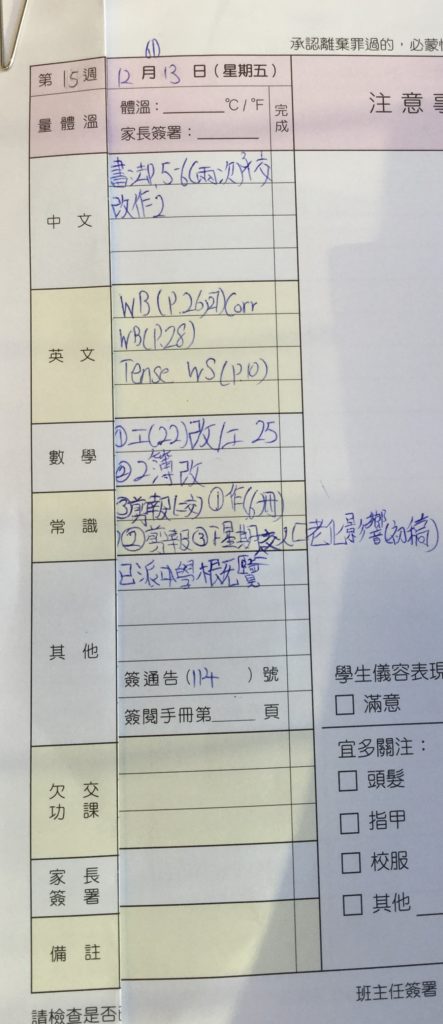 承認離棄罪過的，必蒙
6D
第15週 12月13日（星期五） 注意事
量體溫 體溫：______°C / °F 完成
家長簽署：______
中文 書法P.5-6(兩次)
改作2
英文 WB(P.26,27)Corr
WB(P.28)
Tense WS(P.10)
數學 ①工(22)改/工 25
②2簿改
③剪報(一交) ①作(6冊)
常識 ②剪報③下星期交人口老化影響(初稿)
其他 已派中學概覽
簽通告(114)號
簽閱手冊第____頁
學生儀容表現
□ 滿意
宜多關注：
欠交功課
□ 頭髮
□ 指甲
家長簽署
□ 校服
□ 其他
備註
班主任簽署
請檢查是否